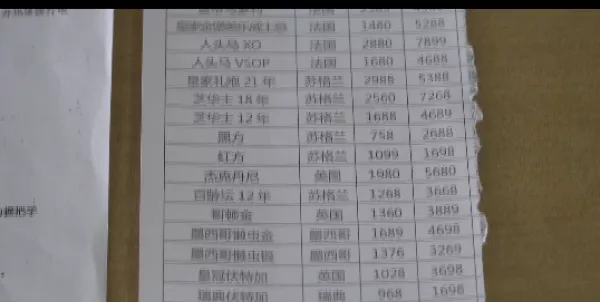 人头马 XO 法国 2880 7899
人头马 VSOP 法国 1680 4688
皇家礼炮 21 年 苏格兰 2988 5388
芝华士 18 年 苏格兰 2560 7268
芝华士 12 年 苏格兰 1688 4689
黑方 苏格兰 758 2688
红方 苏格兰 1099 1698
杰克丹尼 美国 1980 5680
百龄坛 12 年 苏格兰 1268 3668
哥顿金 英国 1360 3889
墨西哥懒虫金 墨西哥 1689 4698
墨西哥懒虫银 墨西哥 1376 3269
皇冠伏特加 英国 1028 3698
瑞典伏特加 瑞典 968 1698